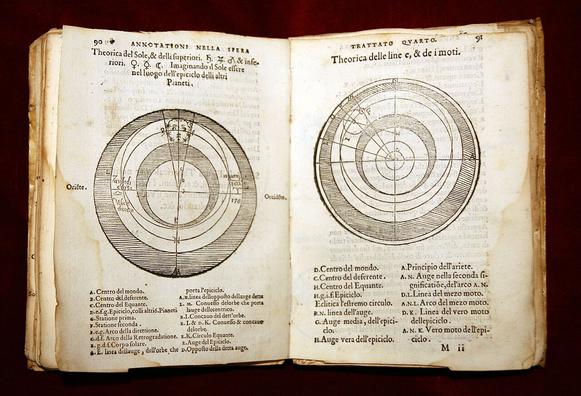 90 ANNOTATIONI NELLA SPERA
Theorica del Sole, & della superiori. ♄ ♃ ♂, & infe-
riori. ♀. ☿. ☾. Imaginando il Sole essere
nel luogo dell'epiciclo delli altri
Pianeti.
Oriēte.
Occidēte.
A. Centro del mondo.
B. Centro del deferente.
C. Centro del Equante.
D. e. f. g. Epiciclo, colli altri Pianeti
e. Statione prima.
Statione seconda.
e. g. Arco della direttione.
g. d. f. Arco della Retrogradatione.
Corpo solare.
linea dell'auge, dell'orbe, che
porta l'epiciclo.
linea dell'opposito dell'auge detta
Conuesso de l'orbe che porta
l'auge dell'eccentrico.
Concauo dell'orbe.
I. & D. K. Conuesso & concauo
dell'orbe.
K. Circulo Equante.
Auge del Epiciclo.
D. Opposito della detta auge.
TRATTATO QVARTO. 91
Theorica delle line e, & de i moti.
D. Centro del mondo.
C. Centro del deferente.
H. Centro del Equante.
H. g. i. f. Epiciclo.
Eclitica l'estremo circulo.
B. N. linea dell'auge.
G. Auge media, dell'epici-
clo.
H. Auge vera dell'epiciclo.
A. Principio dell'ariete.
A. N. Auge nella seconda si-
gnificatiōe, del'arco A. N.
D. L. Linea del mezo moto.
A. N. L. Arco del mezo moto.
D. K. Linea del vero moto
dell'epiciclo.
A. N. K. Vero moto dell'epi-
ciclo.
M ii